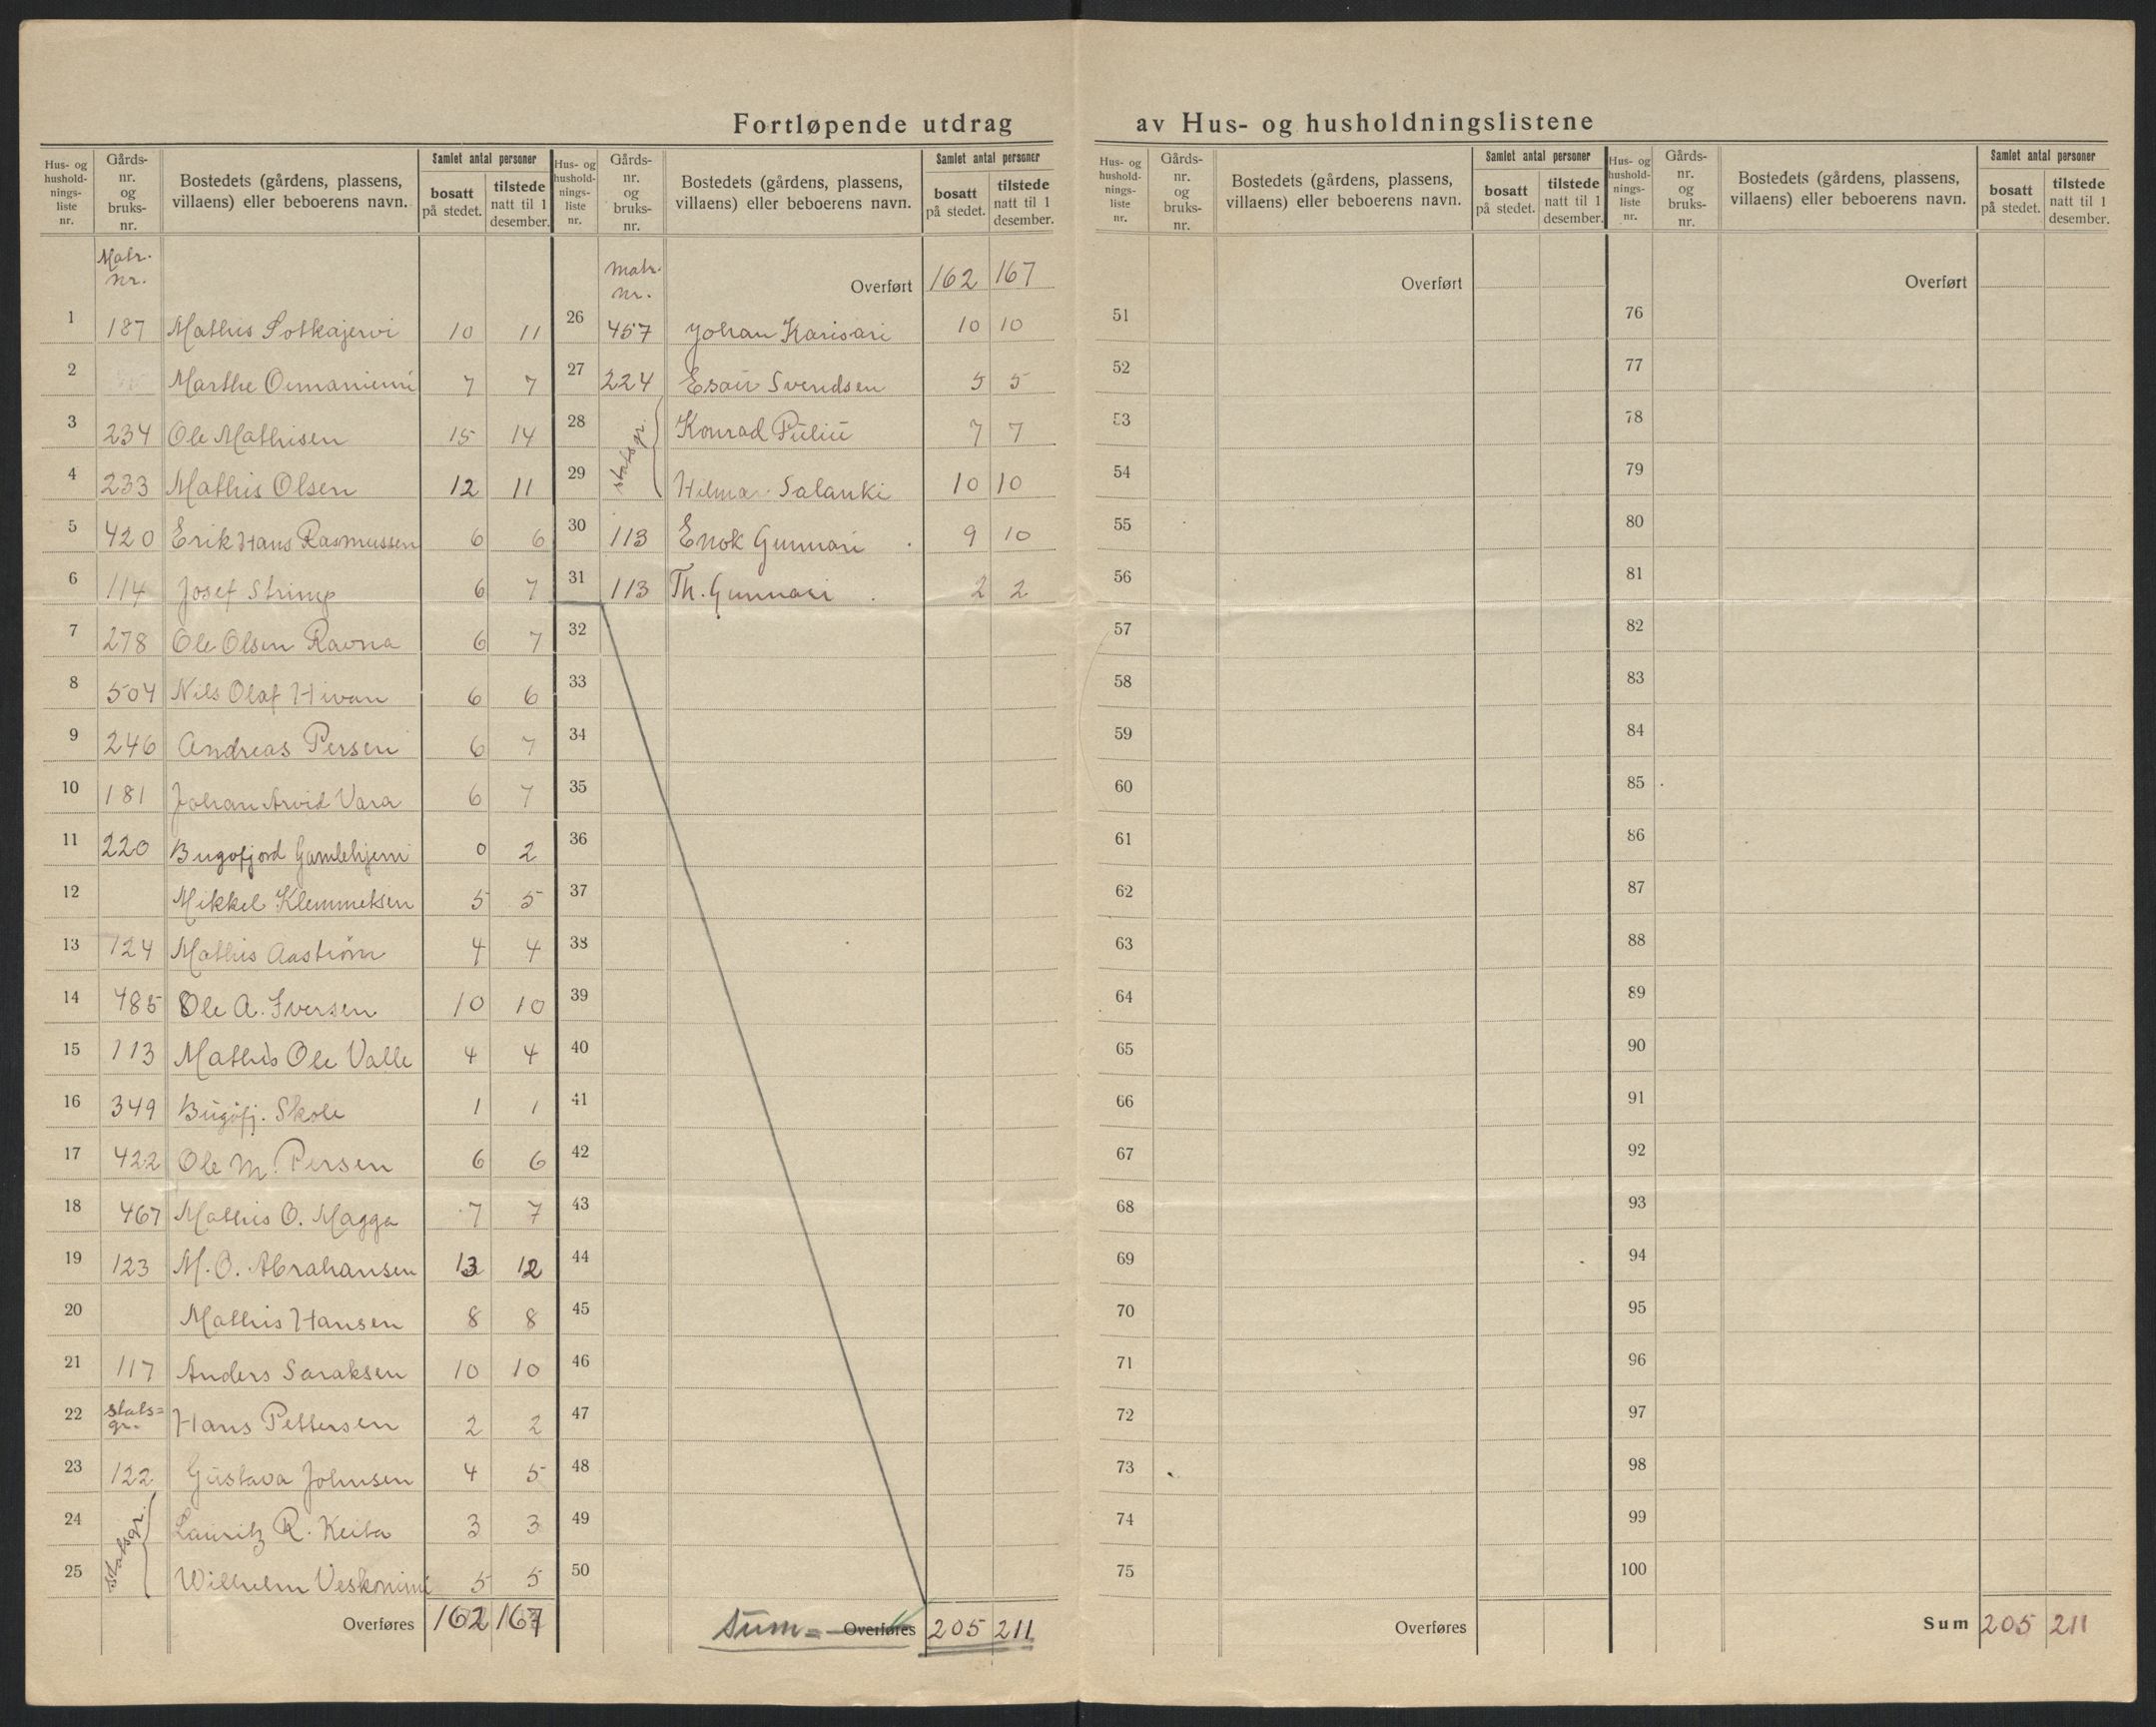 Fortløpende utdrag av Hus- og husholdningslistene
Hus- og hushold- nings- liste nr. Gårds- nr. og bruks- nr. Bostedets (gårdens, plassens, villaens) eller beboerens navn. Samlet antal personer bosatt på stedet. tilstede natt til 1 desember.
Matr. nr.
1 187 Mathis Sotkajervi 10 11
2 Marthe Oinaniemi 7 7
3 234 Ole Mathisen 15 14
4 233 Mathis Olsen 12 11
5 420 Erik Hans Rasmussen 6 6
6 114 Josef Strimp 6 7
7 278 Ole Olsen Ravna 6 7
8 504 Nils Olaf Hivan 6 6
9 246 Andreas Persen 6 7
10 181 Johan Arvid Vara 6 7
11 220 Bugøfjord Gamlehjem 0 2
12 Mikkel Klemmetsen 5 5
13 124 Mathis Aaström 4 4
14 485 Ole A. Iversen 10 10
15 113 Mathis Ole Valle 4 4
16 349 Bugøfj. Skole 1 1
17 422 Ole M. Persen 6 6
18 467 Mathis O. Magga 7 7
19 123 M. O. Abrahansen 13 12
20 Mathis Hansen 8 8
21 117 Anders Saraksen 10 10
22 stats= gr. Hans Pettersen 2 2
23 122 Gustava Johnsen 4 5
24 statsgr. Lauritz R. Keita 3 3
25 Wilhelm Veskonimi 5 5
Overføres 162 167
Hus- og hushold- nings- liste nr. Gårds- nr. og bruks- nr. Bostedets (gårdens, plassens, villaens) eller beboerens navn. Samlet antal personer bosatt på stedet. tilstede natt til 1 desember.
Matr. nr. Overført 162 167
26 457 Johan Karisari 10 10
27 224 Esaü Svendsen 5 5
28 statsgr. Konrad Puliü 7 7
29 Hilmar Salanki 10 10
30 113 Enok Gunnari 9 10
31 113 Th. Gunnari 2 2
32
33
34
35
36
37
38
39
40
41
42
43
44
45
46
47
48
49
50
Sum = Overføres 205 211
Hus- og hushold- nings- liste nr. Gårds- nr. og bruks- nr. Bostedets (gårdens, plassens, villaens) eller beboerens navn. Samlet antal personer bosatt på stedet. tilstede natt til 1 desember.
Overført
51
52
53
54
55
56
57
58
59
60
61
62
63
64
65
66
67
68
69
70
71
72
73
74
75
Overføres
Hus- og hushold- nings- liste nr. Gårds- nr. og bruks- nr. Bostedets (gårdens, plassens, villaens) eller beboerens navn. Samlet antal personer bosatt på stedet. tilstede natt til 1 desember.
Overført
76
77
78
79
80
81
82
83
84
85
86
87
88
89
90
91
92
93
94
95
96
97
98
99
100
Sum 205 211